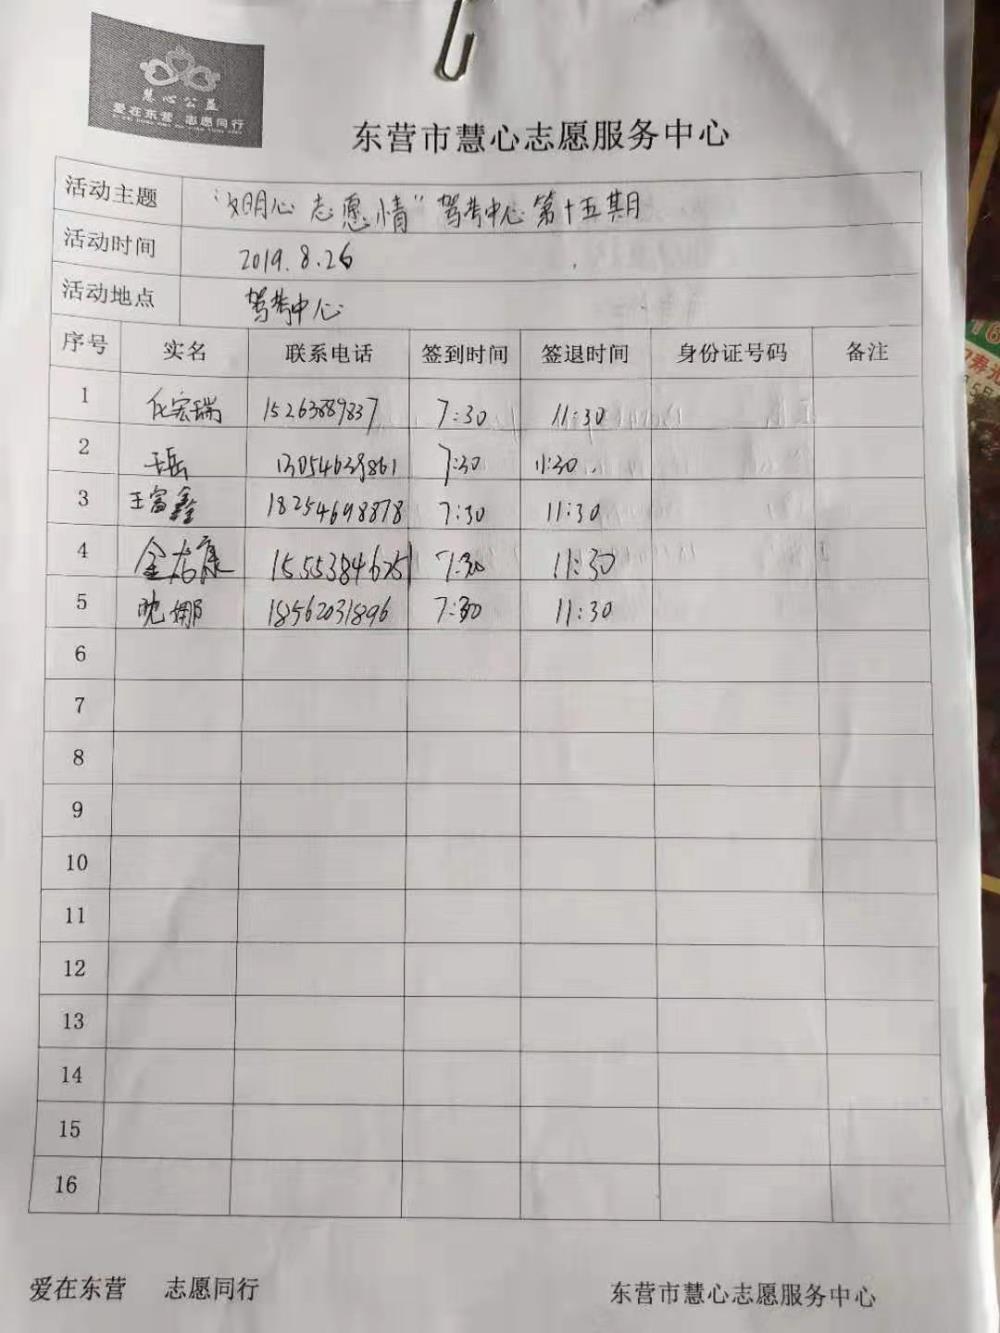 慧心公益
爱在东营 志愿同行
东营市慧心志愿服务中心
活动主题 "文明心 志愿情"驾考中心第十五期
活动时间 2019.8.26
活动地点 驾考中心
序号 实名 联系电话 签到时间 签退时间 身份证号码 备注
1 任宏瑞 15263889837 7:30 11:30
2 13054639861 7:30 11:30
3 王富鑫 18254698878 7:30 11:30
4 7:30 11:30
5 18562031896 7:30 11:30
6
7
8
9
10
11
12
13
14
15
16
爱在东营 志愿同行 东营市慧心志愿服务中心